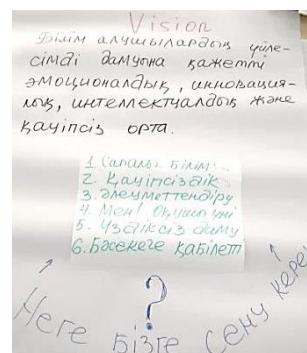 Vision
Білім алушылардың үйле-
сімді дамуына қажетті
эмоционалдық, инновация-
лық, интеллектуалдық және
қауіпсіз орта.
1. Сапалы білім!
2. Қауіпсіздік
3. Әлеуметтендіру
4. Мен! Оқушы үні
5. Үздіксіз даму
6. Бәсекеге қабілет
?
Неге бізге сену керек